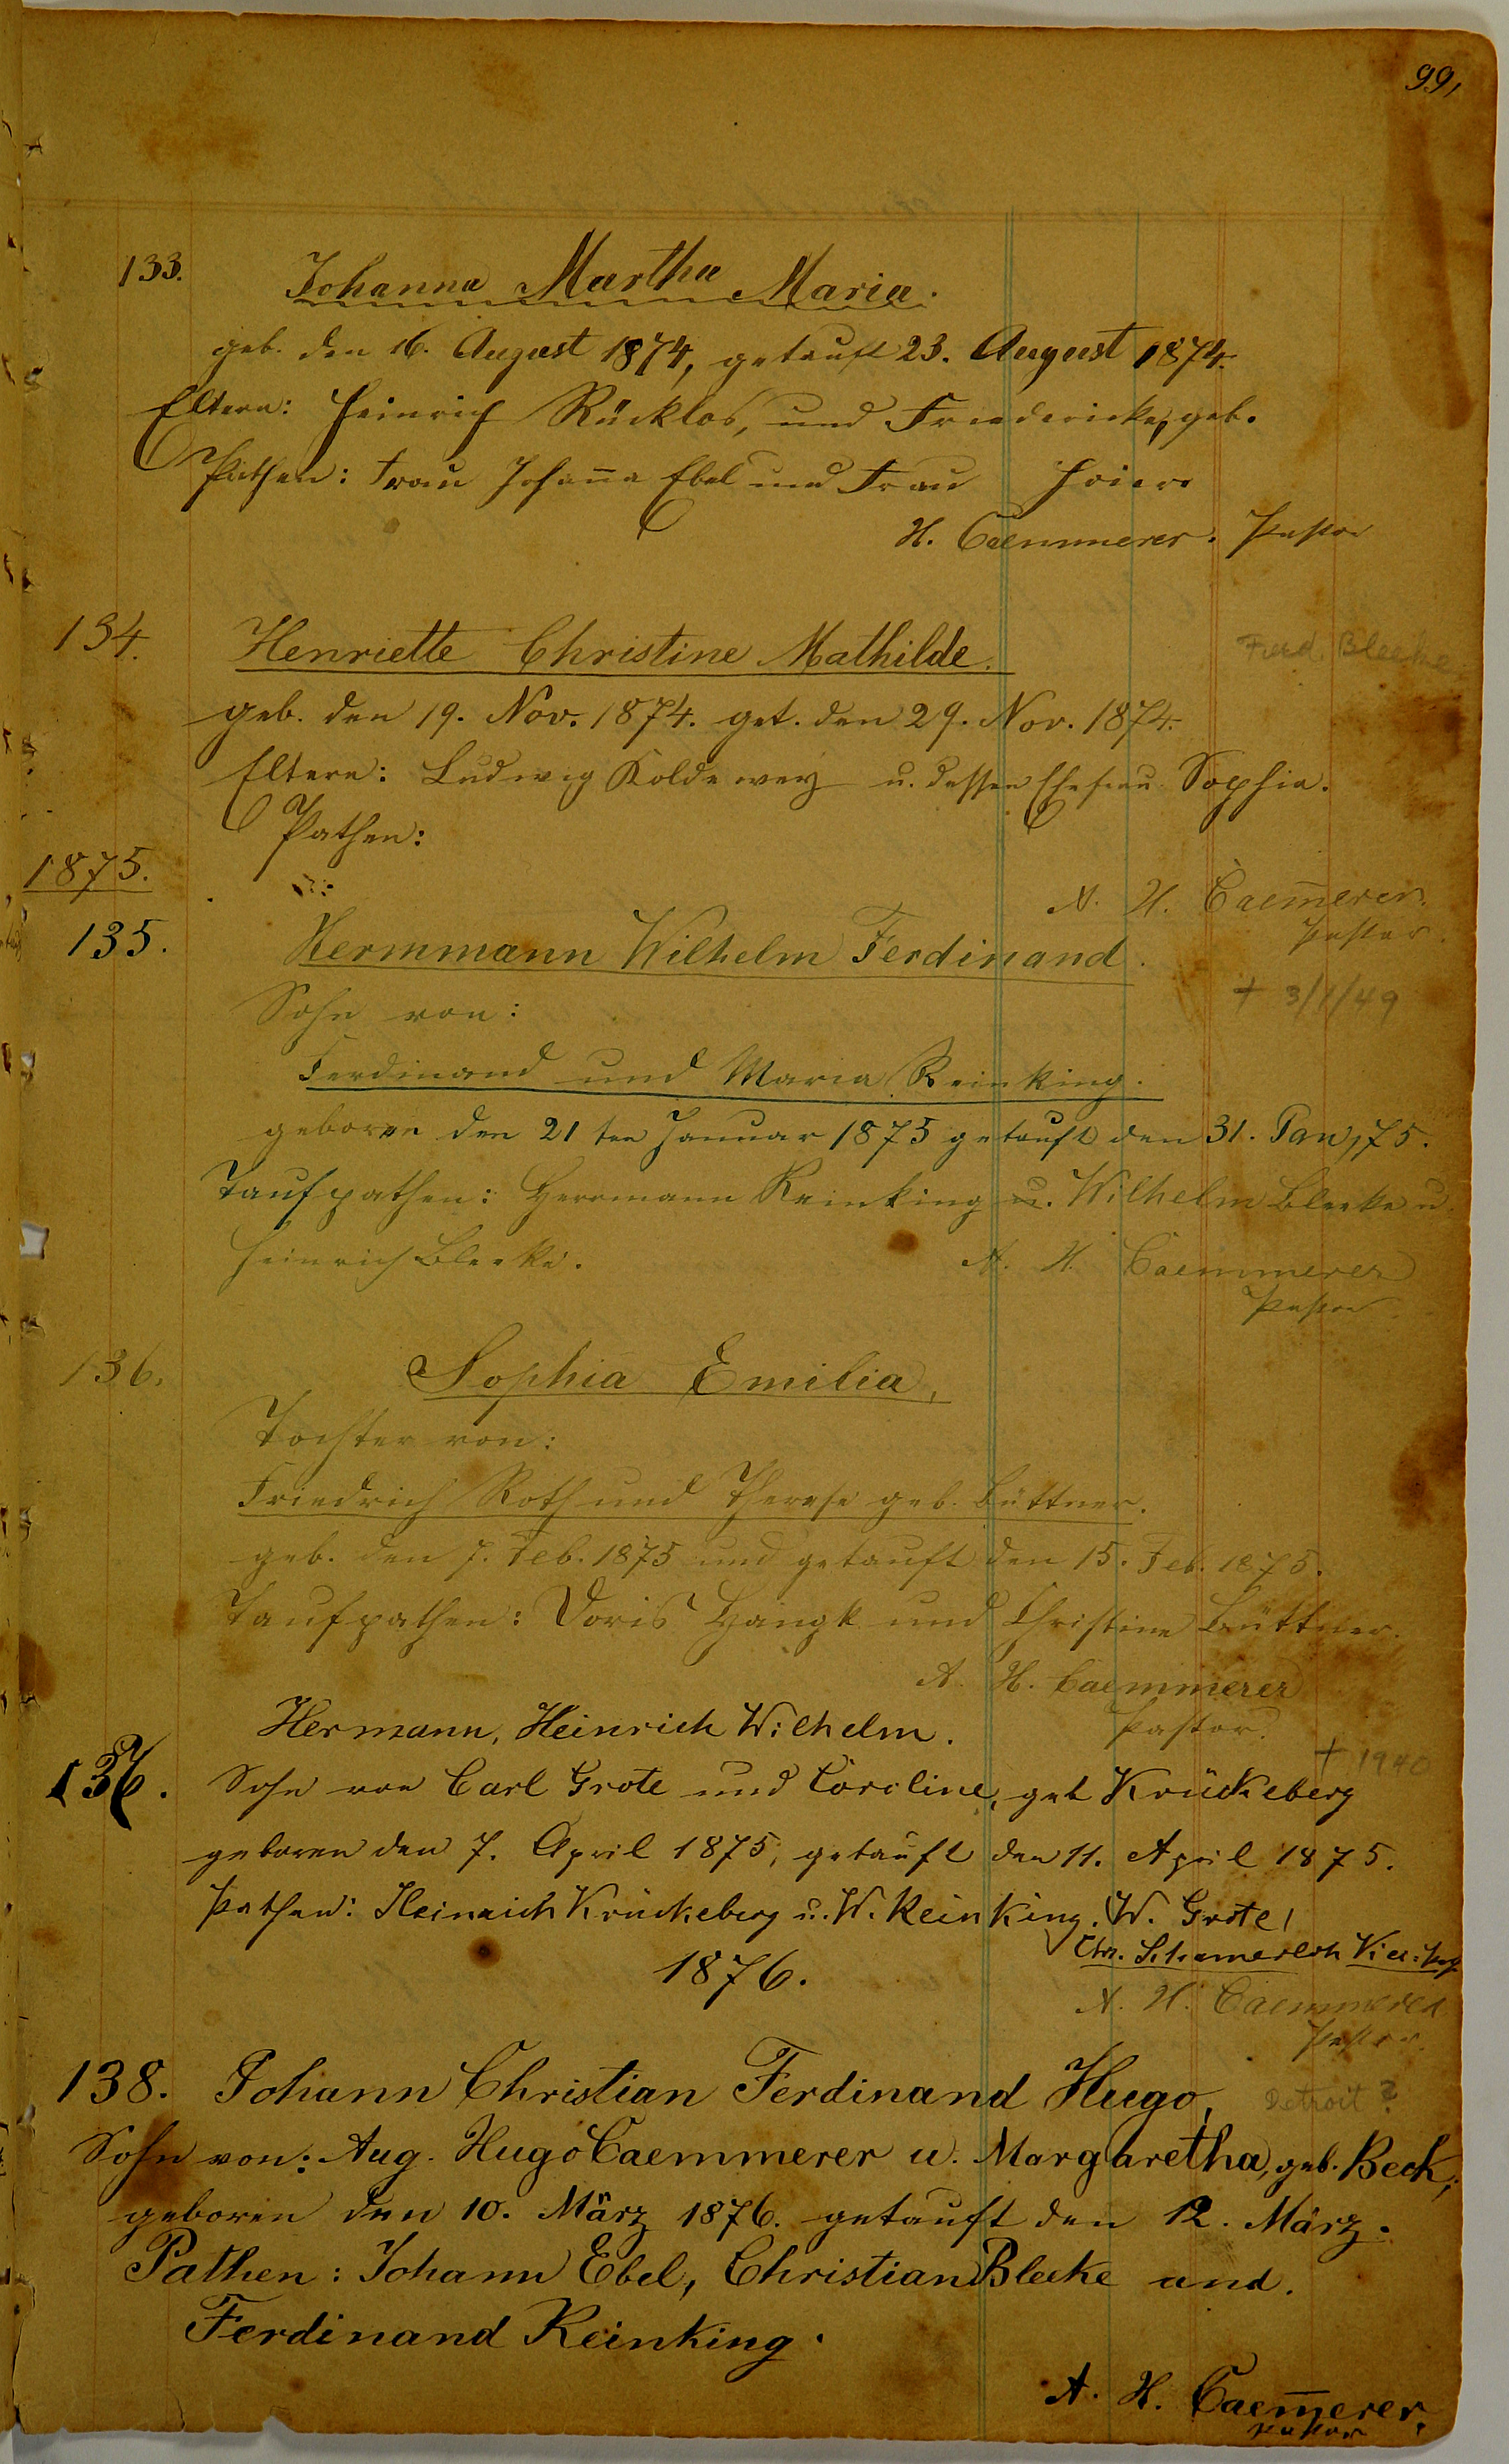 99,
133.
Johanna Martha Maria.
geb. den 16. August 1874, getauft 23. August 1874.
Eltern: Heinrich Rücklos, und Friedericke, geb.
Pathen: Frau Johan̄a Ebel und Frau Hoier
H. Caemmerer. Pastor
134. Henriette Christine Mathilde.
Ferd. Bleeke
geb. den 19. Nov. 1874. get. den 29. Nov. 1874.
Eltern: Ludwig Koldewey u. dessen Ehefrau Sophia.
Pathen:
1875.
A. H. Caem̄erer.
Pastor.
135. Hermmann Wilhelm Ferdinand.
† 3/1/49
Sohn von:
Ferdinand und Maria Reinking.
geboren den 21ten Januar 1875 getauft den 31. Jan, 75.
Taufpathen: Herrmann Reinking u. Wilhelm Bleeke u.
Heinrich Bleeke.
A. H. Caemmerer
Pastor
136. Sophia Emilia,
Tochter von:
Friedrich Roth und Therese geb. Büttner.
geb. den 7. Feb. 1875 und getauft den 15. Feb. 1875.
Taufpathen: Doris und Christine Büttner.
A. H. Caemmerer
Pastor.
Hermann, Heinrich Wilhelm.
† 1940
137. Sohn von Carl Grote und Caroline, geb Krückeberg
geboren den 7. April 1875, getauft den 11. April 1875.
Pathen: Heinrich Krückeberg u. W. Reinking. W. Grote,
Chr.
1876.
A. H. Caemmerer
Pastor.
138. Johann Christian Ferdinand Hugo,
Detroit ?
Sohn von: Aug. Hugo Caemmerer u. Margaretha, geb. Beck,
geboren den 10. März 1876. getauft den 12. März.
Pathen: Johann Ebel, Christian Bleeke und.
Ferdinand Reinking.
A. H. Caem̄erer,
Pastor